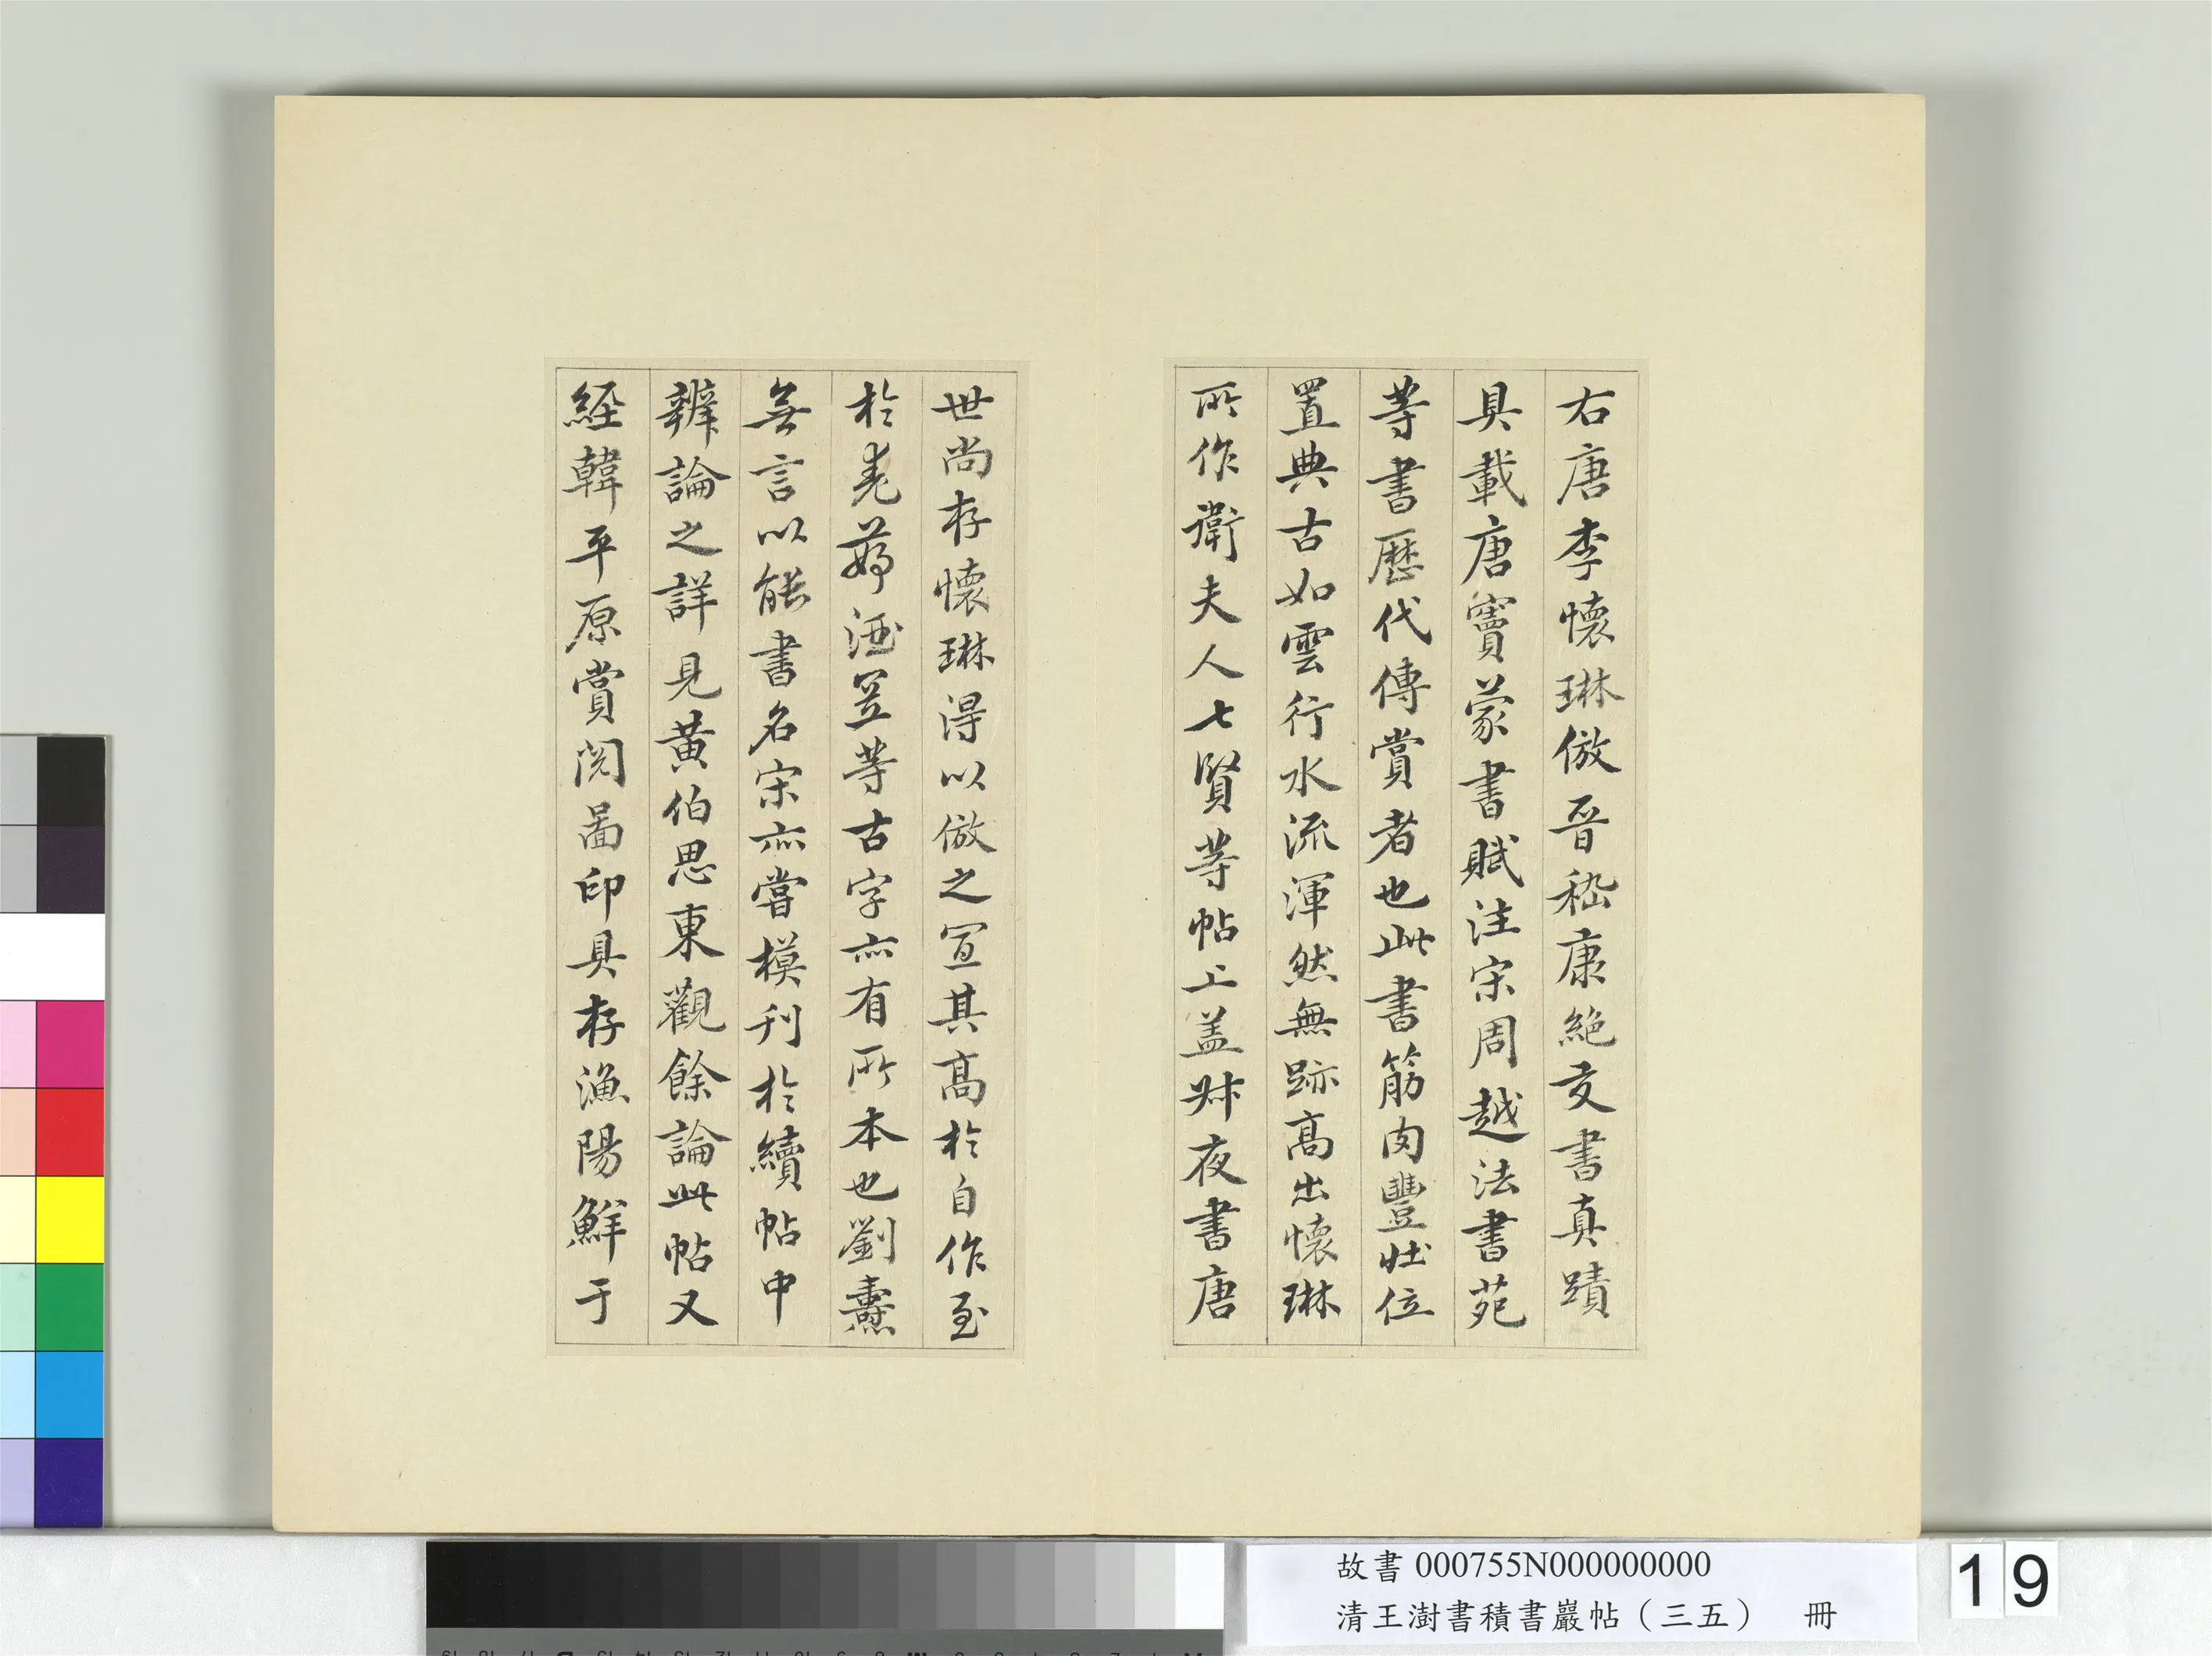 右唐李懷琳倣晉嵇康絕交書真蹟
具載唐竇蒙書賦注宋周越法書苑
等書歷代傳賞者也此書筋肉豐壯位
置典古如雲行水流渾然無跡高出懷琳
所作衛夫人七賢等帖上蓋叔夜書唐
世尚存懷琳得以倣之宜其高於自作至
於
等古字亦有所本也劉燾
無言以能書名宋亦嘗模刊於續帖中
辨論之詳見黃伯思東觀餘論此帖又
經韓平原賞閱圖印具存漁陽鮮于
故書 000755N000000000
清王澍書積書巖帖（三五） 冊
19